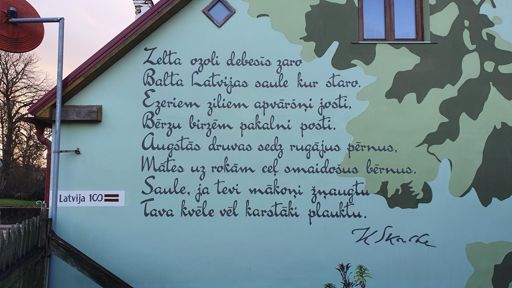 Zelta ozoli debesīs zaro
Balta Latvijas saule kur staro.
Ezeriem ziliem apvāršņi josti,
Bērzu birzēm pakalni posti.
Augstās druvas sedz rugājus pērnus,
Mātes uz rokām ceļ smaidošus bērnus.
Saule, ja tevi mākoņi žņaugtu
Tava kvēle vēl karstāki plauktu.
K Skalbe
Latvija 100